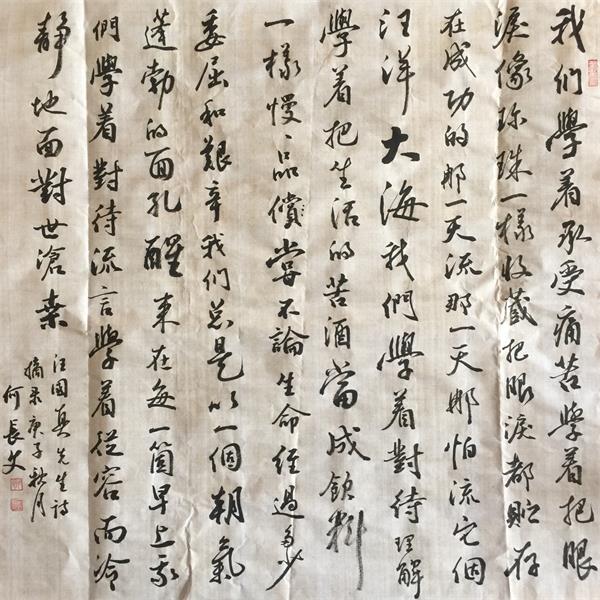 我们學着承受痛苦學着把眼
淚像珍珠一樣收藏把眼淚都贮存
在成功的那一天流那一天哪怕流它個
汪洋大海我們學着對待理解
學着把生活的苦酒當成飲料
一樣慢慢品償嘗不論生命经過多少
委屈和艱辛我们总是以一個朝氣
蓬勃的面孔醒来在每一箇早上我
們學着對待流言學着從容而冷
靜地面對世滄桑
汪国真先生詩
摘录庚子秋月
何長史